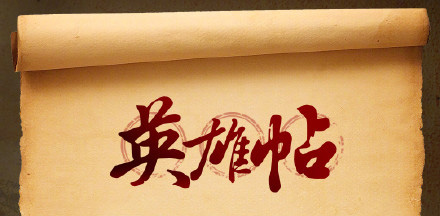 英雄帖